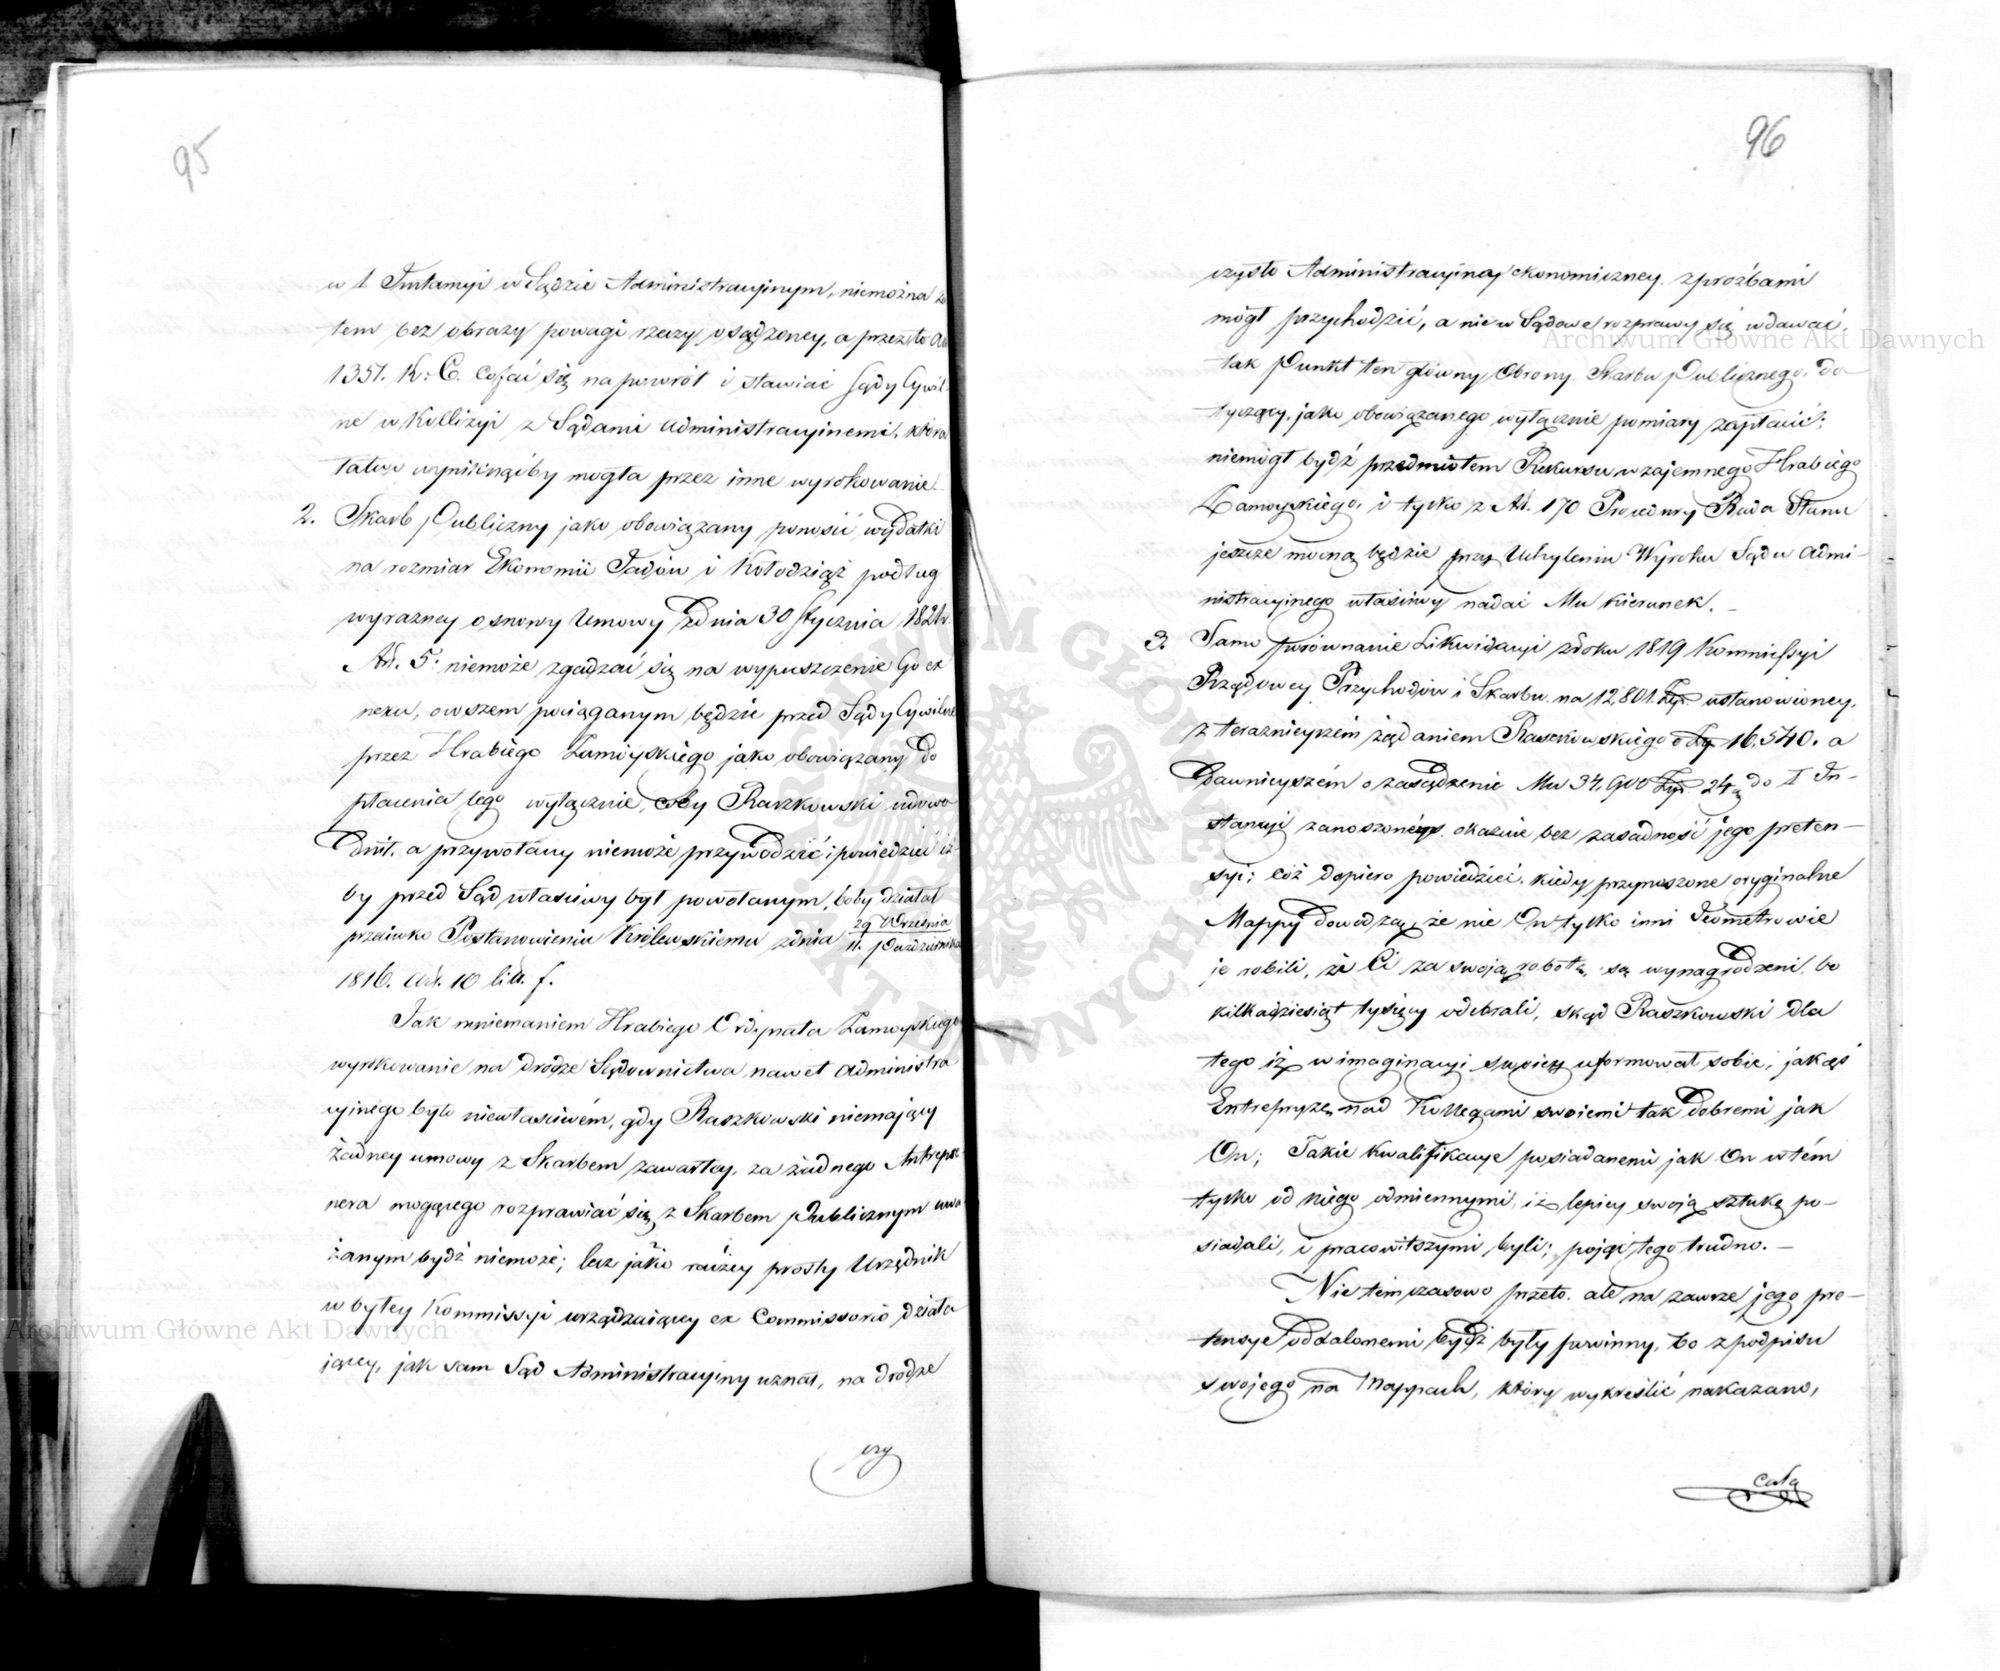 95
w 1 Instancyi w Sądzie Administracyinym, niemożna za
tem bez obrazy powagi rzeczy osądzoney, a przez to Art
1351. K: C. cofać się na powrót i stawiać Sądy Cywil
ne w Kollizyi z Sądami Administracyinemi, która
łatwo wyniknąćby mogła przez inne wyrokowanie.
2. Skarb Publiczny jako obowiązany ponosić wydatki
na rozmiar Ekonomii Tadów i Kołodziąż podług
wyrazney osnowy Umowy z dnia 30 Stycznia 1821 r.
Art. 5. niemoże zgadzać się na wypuszczenie Go ex
nexu, owszem pociąganym będzie przed Sądy Cywilne
przez Hrabiego Zamoyskiego jako obowiązany do
płacenia tego wyłącznie, coby Raszkowski udowo
dnił. a przywołany niemoże przywodzić i powiedzieć iż
by przed Sąd właściwy był powołanym, boby działał
przeciwko Postanowieniu Królewskiemu z dnia 29 Września
11. Października
1816. Art. 10 litt. f.
Jak mniemaniem Hrabiego Ordynata Zamoyskiego
wyrokowanie na drodze Sądownictwa nawet Administra
cyinego było niewłaściwém, gdy Raszkowski niemający
żadney umowy z Skarbem zawartey, za żadnego Antrepre
nera mogącego rozprawiać się z Skarbem Publicznym uwa
żanym bydź niemoże; lecz jako raczey prosty Urzędnik
w byłey Kommissyi urządzaiącey ex Commissorio działa
jący, jak sam Sąd Administracyiny uznał, na drodze
czy
96
czysto Administracyiney ekonomiczney z prożbami
mógł przychodzić, a nie w Sądowe rozprawy się wdawać.
tak Punkt ten główny Obrony Skarbu Publicznego, do
tyczący, jako obowiązanego wyłącznie pomiary zapłacić;
niemógł bydź przedmiotem Rekursu wzajemnego Hrabiego
Zamoyskiego, i tylko z Art. 170 Procedury Rada Stanu
jeszcze mocną będzie przy Uchyleniu Wyroku Sądu Admi-
nistracyinego właściwy nadać Mu kierunek. –
3. Samo porównanie Likwidacyi z Roku 1819 Kommissyi
Rządowey Przychodów i Skarbu na 12,801. Złp. ustanowioney,
z teraznieyszém żądaniem Raszkowskiego o Złp 16,540. a
Dawnieyszém o zasądzenie Mu 34,900 Złp. 24 g do I In-
stancyi zanoszoném okazuie bez zasadność jego preten-
syi; cóż dopiero powiedzieć, kiedy przynoszone oryginalne
Mappy dowodzą, że nie On tylko inni Jeometrowie
je robili, że Ci za swoją robotę są wynagrodzeni, bo
kilkadziesiąt tysięcy odebrali, skąd Raszkowski dla
tego iż w imaginacyi swoiey uformował sobie, jakąś
Entrepryzę nad Kollegami swoiemi tak dobremi jak
On; Takie kwalifikacye posiadanemi jak On w tém
tylko od niego odmiennymi, iż lepiey swoją sztukę po-
siadali, i pracowitszymi byli; pojąć tego trudno. –
Nie temczasowo przeto. ale na zawsze jego pre-
tensye oddalonemi bydź były powinny, bo z podpisu
swojego na Mappach, który wykreślić nakazano,
całą
Archiwum Główne Akt Dawnych